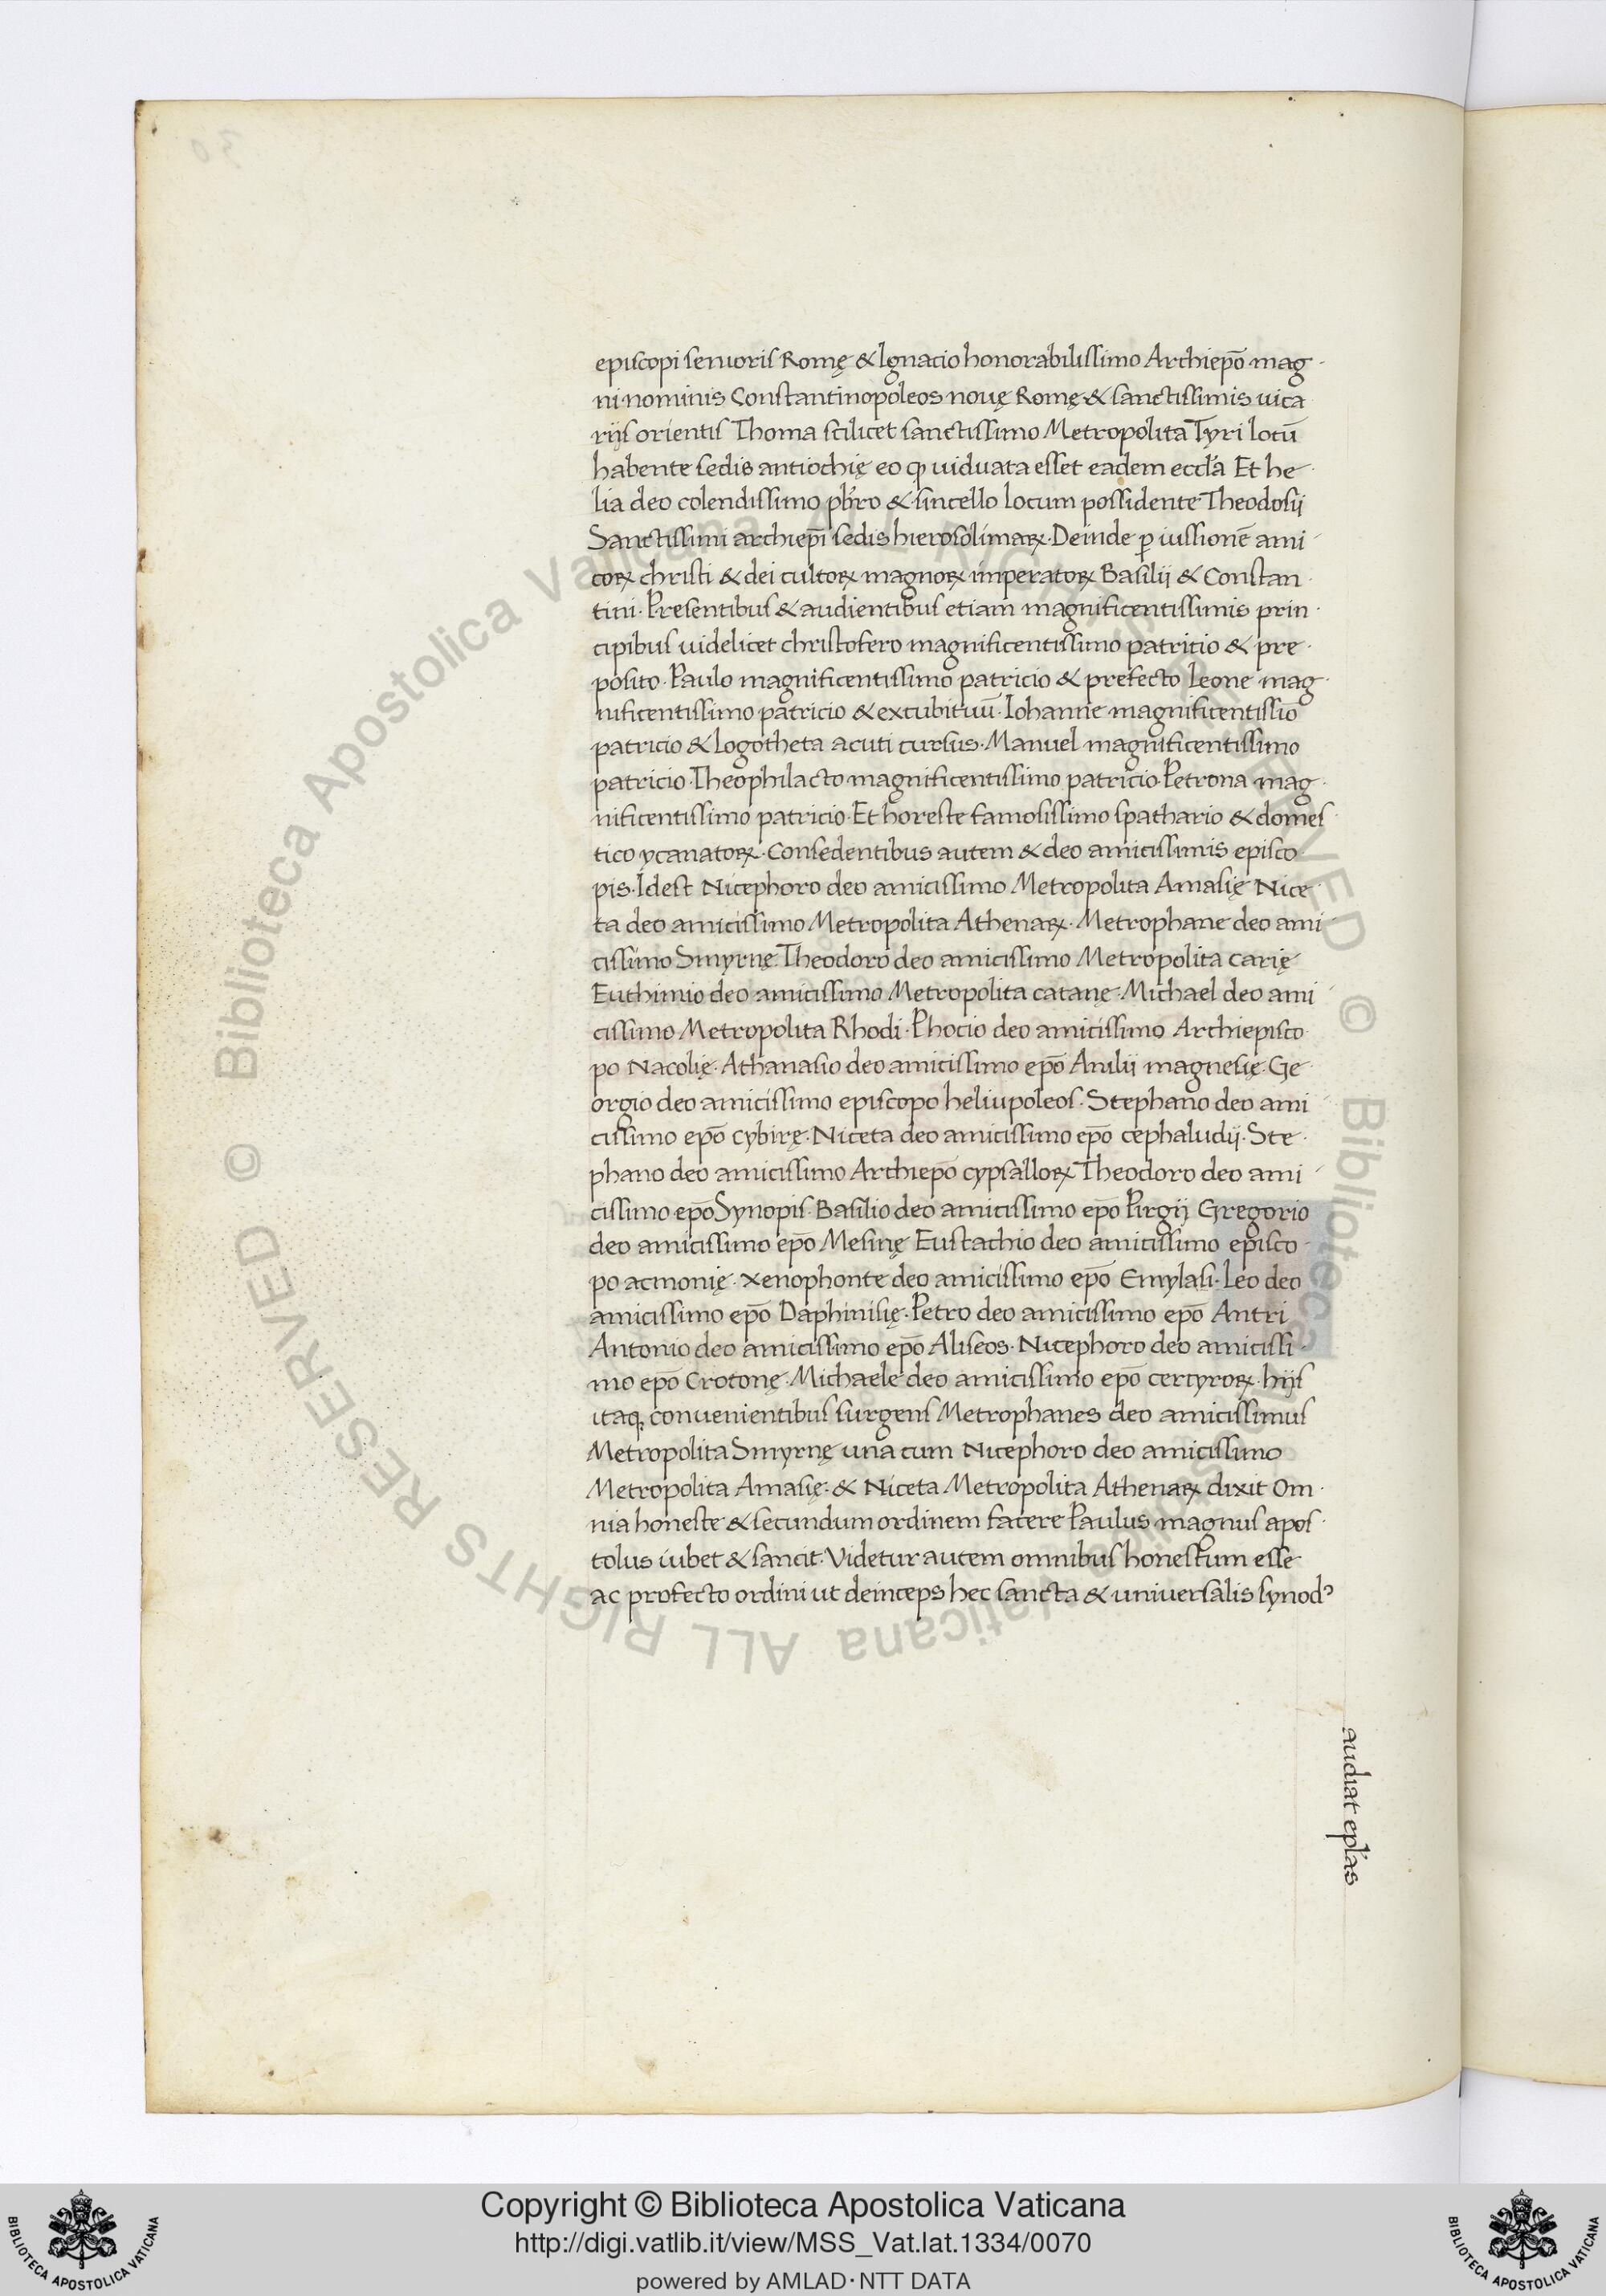 episcopi senioris Romę & Ignacio honorabilissimo Archiepō mag
ni nominis Constantinopoleos nouę Romę & sanctissimis uica
rijs orientis Thoma scilicet sanctissimo Metropolita Tyri locū
habente sedis antiochię eo ꝙ uiduata esset eadem eccl'a Et he
lia deo colendissimo pb'ro & sincello locum possidente Theodosij
Sanctissimi archiep̄i sedis hierosolimaꝝ. Deinde ꝑ iussionē ami
coꝝ christi & dei cultoꝝ magnoꝝ imperatoꝝ Basilij & Constan
tini. Presentibus & audientibus etiam magnificentissimis prin
cipibus uidelicet christofero magnificentissimo patritio & pre
posito. Paulo magnificentissimo patricio & prefecto Leone mag
nificentissimo patricio & excubituū. Iohanne magnificentissio
patricio & logotheta acuti cursus. Manuel magnificentissimo
patricio. Theophilacto magnificentissimo patricio. Petrona mag
nificentissimo patricio. Et horeste famosissimo spathario & domes
tico ycanatoꝝ. Consedentibus autem & deo amicissimis episco
pis. Idest Nicephoro deo amicissimo Metropolita Amasię Nice
ta deo amicissimo Metropolita Athenaꝝ. Metrophane deo ami
cissimo Smyrnę. Theodoro deo amicissimo Metropolita carię
Euthimio deo amicissimo Metropolita catanę. Michael deo ami
cissimo Metropolita Rhodi. Phocio deo amicissimo Archiepisco
po Nacolię. Athanasio deo amicissimo epō magnesię. Ge
orgio deo amicissimo episcopo heliupoleos. Stephano deo ami
cissimo epō cybirę. Niceta deo amicissimo epō cephaludij. Ste
phano deo amicissimo Archiepō cypsalloꝝ Theodoro deo ami
cissimo epō Synopis. Basilio deo amicissimo epō Pirgij Gregorio
deo amicissimo epō Mesinę Eustachio deo amicissimo episco
po acmonię. Xenophonte deo amicissimo epō Emylasi. Leo deo
amicissimo epō Daphinisię. Petro deo amicissimo epō Antri
Antonio deo amicissimo epō Aliseos. Nicephoro deo amicissi
mo epō Crotonę. Michaele deo amicissimo epō certyroꝝ. hijs
itaq; conuenientibus surgens Metrophanes deo amicissimus
Metropolita Smyrnę una cum Nicephoro deo amicissimo
Metropolita Amasię. & Niceta Metropolita Athenaꝝ dixit Om
nia honeste & secundum ordinem facere Paulus magnus apos
tolus iubet & sancit. Videtur autem omnibus honestum esse
ac profecto ordini ut deinceps hec sancta & uniuersalis synodꝰ
audiat epl'as
© Biblioteca Apostolica Vaticana ALL RIGHTS RESERVED © Biblioteca Apostolica Vaticana ALL RIGHTS RESERVED
BIBLIOTECA APOSTOLICA VATICANA
Copyright © Biblioteca Apostolica Vaticana
http://digi.vatlib.it/view/MSS_Vat.lat.1334/0070
powered by AMLAD·NTT DATA
BIBLIOTECA APOSTOLICA VATICANA